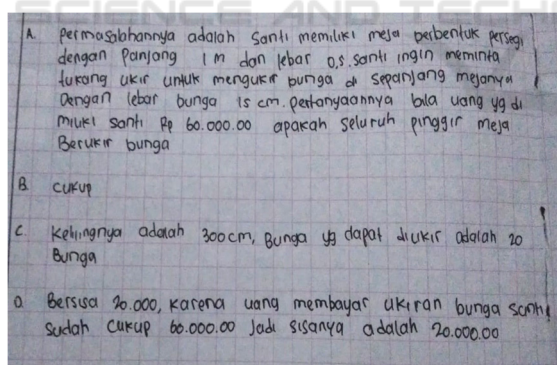 SCIENCE AND TECH
A. Permasalahannya adalah Santi memiliki meja berbentuk persegi
dengan Panjang 1 m dan lebar 0,5. santi ingin meminta
tukang ukir untuk mengukir bunga di sepanjang mejanya
Dengan lebar bunga 15 cm. pertanyaannya bila uang yg di
miliki santi Rp 60.000.00 apakah seluruh pinggir meja
Berukir bunga
B. cukup
C. Kelilingnya adalah 300 cm, Bunga yg dapat diukir adalah 20
Bunga
D. Bersisa 20.000, karena uang membayar ukiran bunga santi
sudah cukup 60.000.00 Jadi sisanya adalah 20.000.00